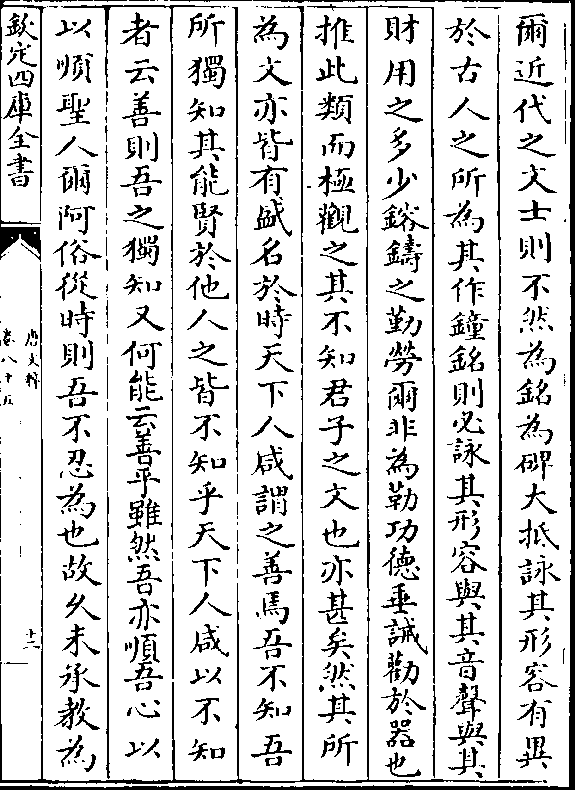 爾近代之文士則不然為銘為碑大抵詠其形容有異
於古人之所為其作鐘銘則必詠其形容與其音聲與其
財用之多少鎔鑄之勤勞爾非為勒功德垂誡勸於器也
推此類而極觀之其不知君子之文也亦甚矣然其所
為文亦皆有盛名於時天下人咸謂之善焉吾不知吾
所獨知其能賢於他人之皆不知乎天下人咸以不知
者云善則吾之獨知又何能云善乎雖然吾亦順吾心以
以順聖人爾阿俗從時則吾不忍為也故久未承教為
欽定四庫全書
唐文粹
卷八十五
十二